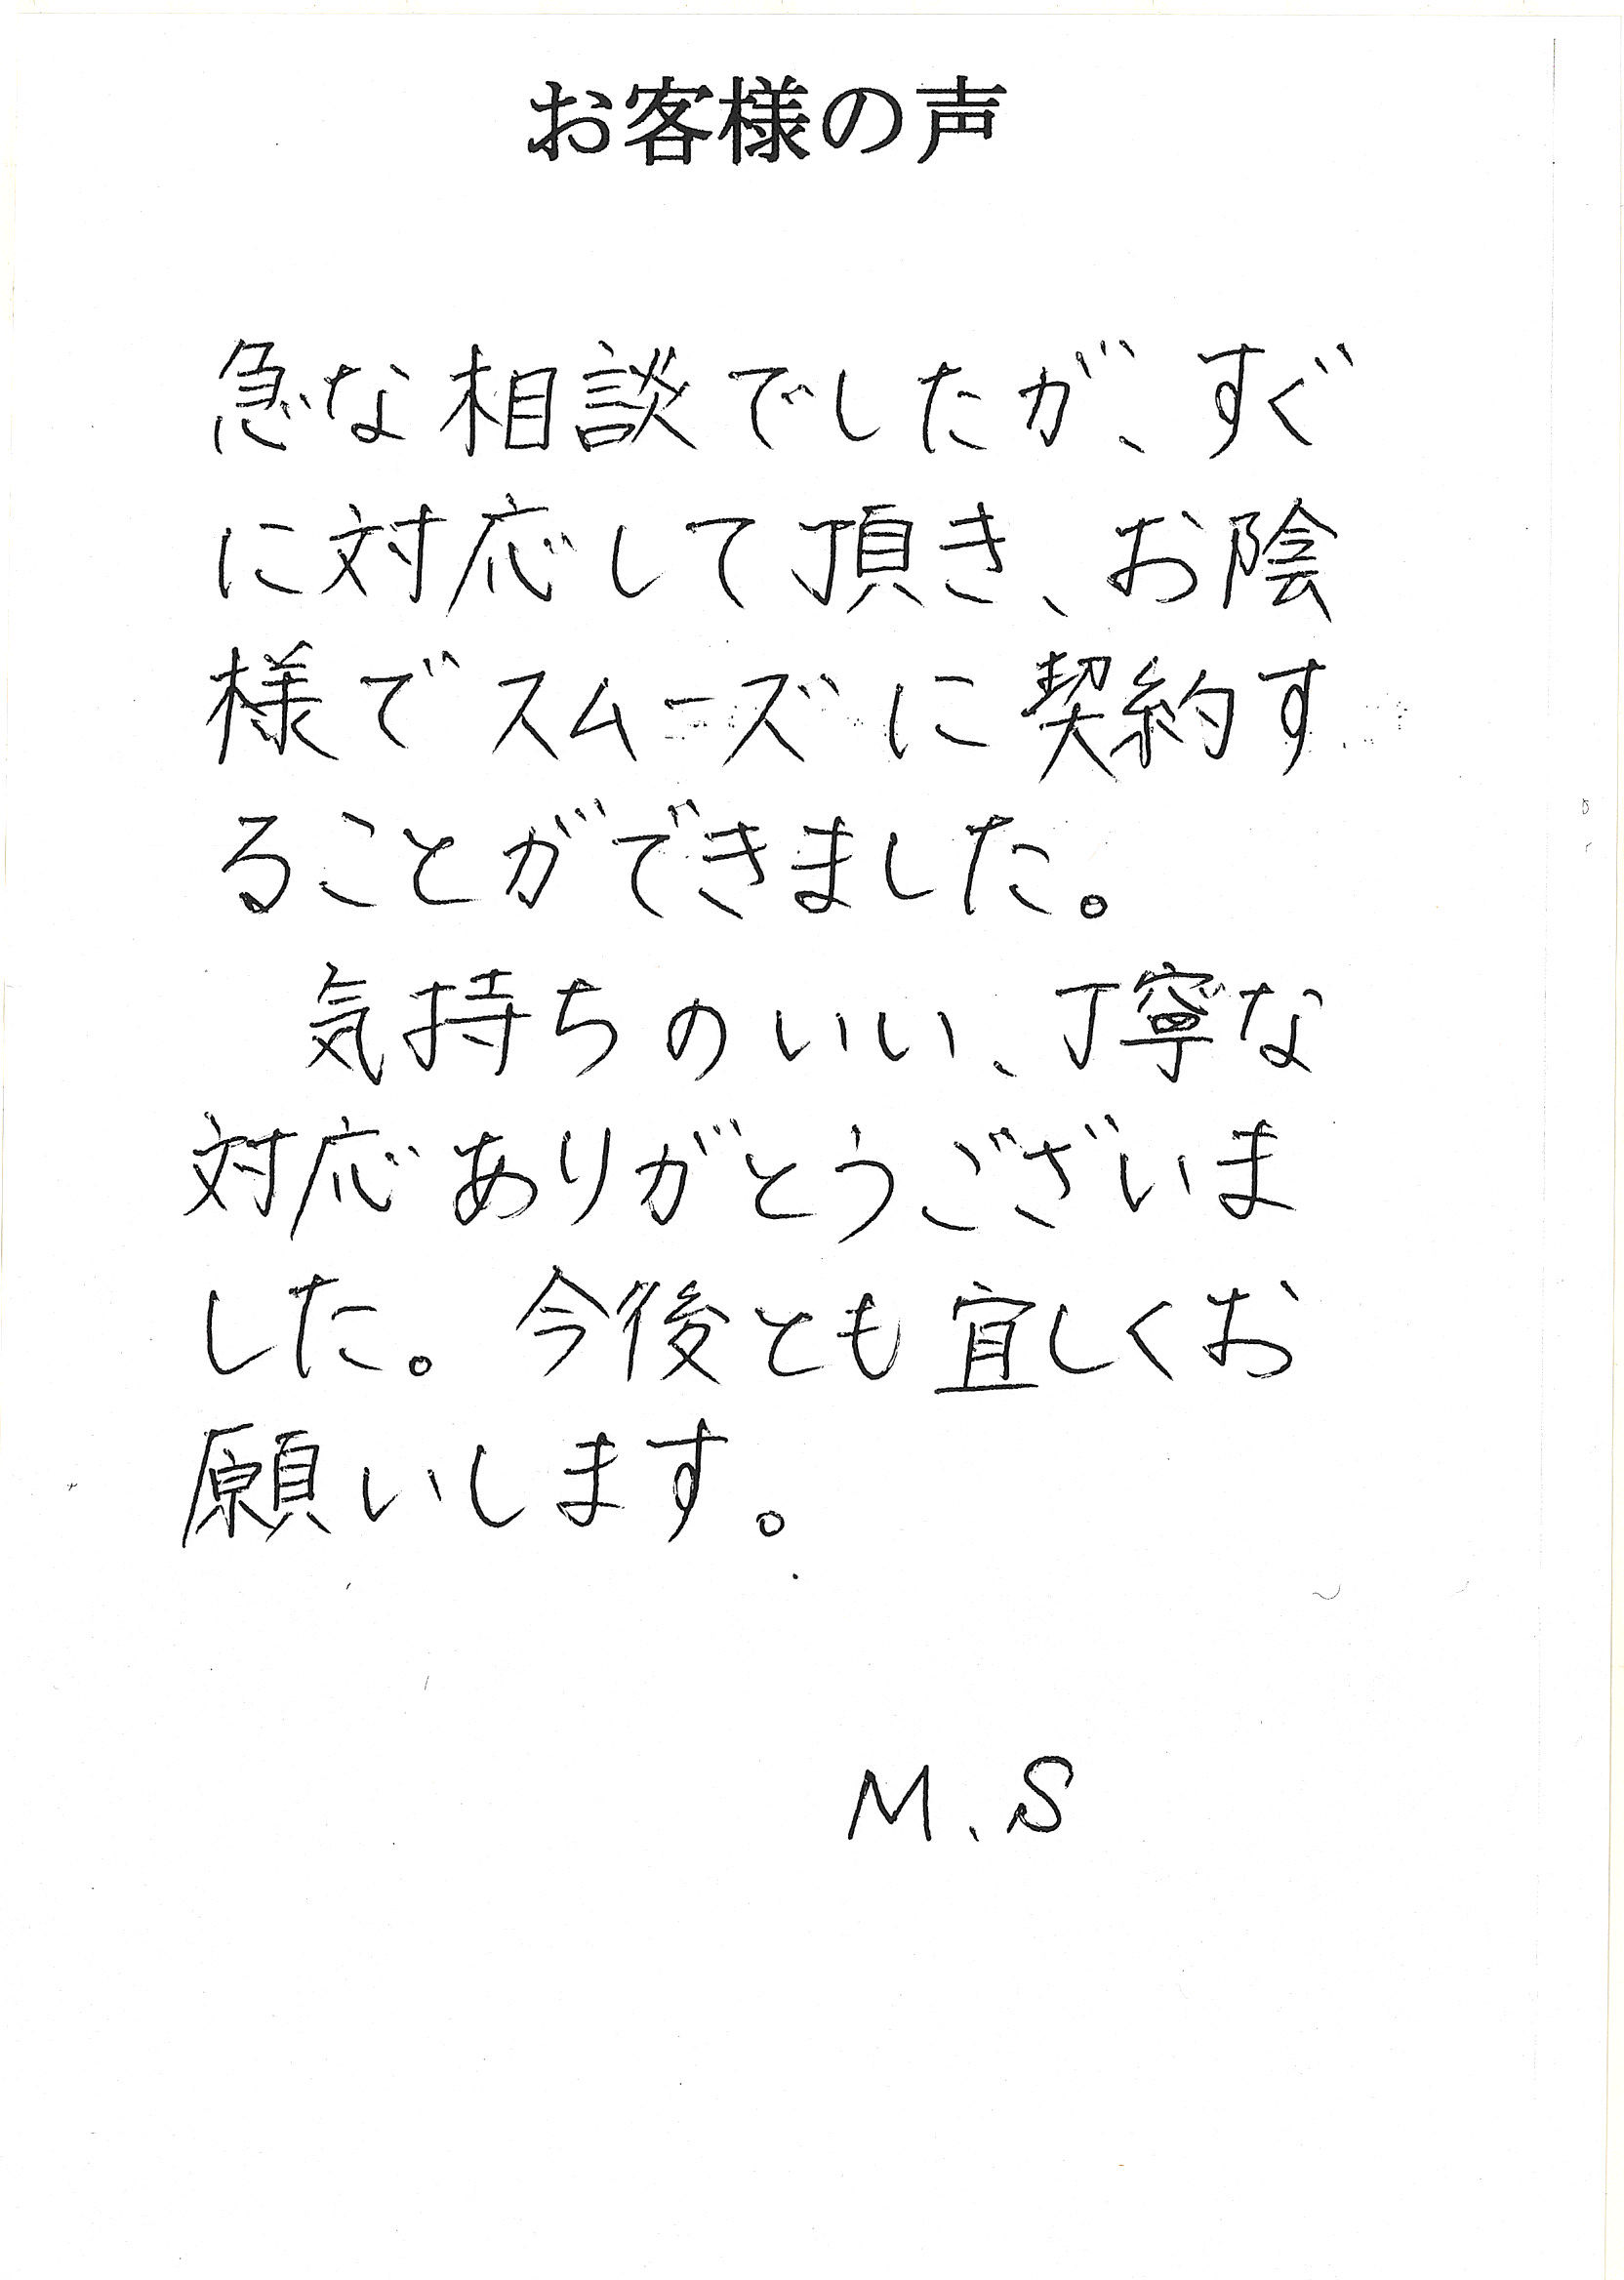 お客様の声
急な相談でしたが、すぐ
に対応して頂き、お陰
様でスムーズに契約す
ることができました。
気持ちのいい、丁寧な
対応ありがとうございま
した。今後とも宜しくお
願いします。
M.S